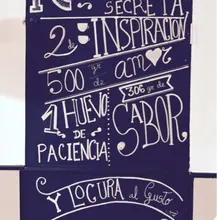 SECRETA
2 de INSPIRACION
500 gr de amor
306 gr de
1 HUEVO
DE
PACIENCIA
SABOR
Y LOCURA al Gusto